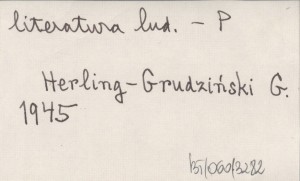 literatura lud. - P
Herling-Grudziński G.
1945
131/060/3282